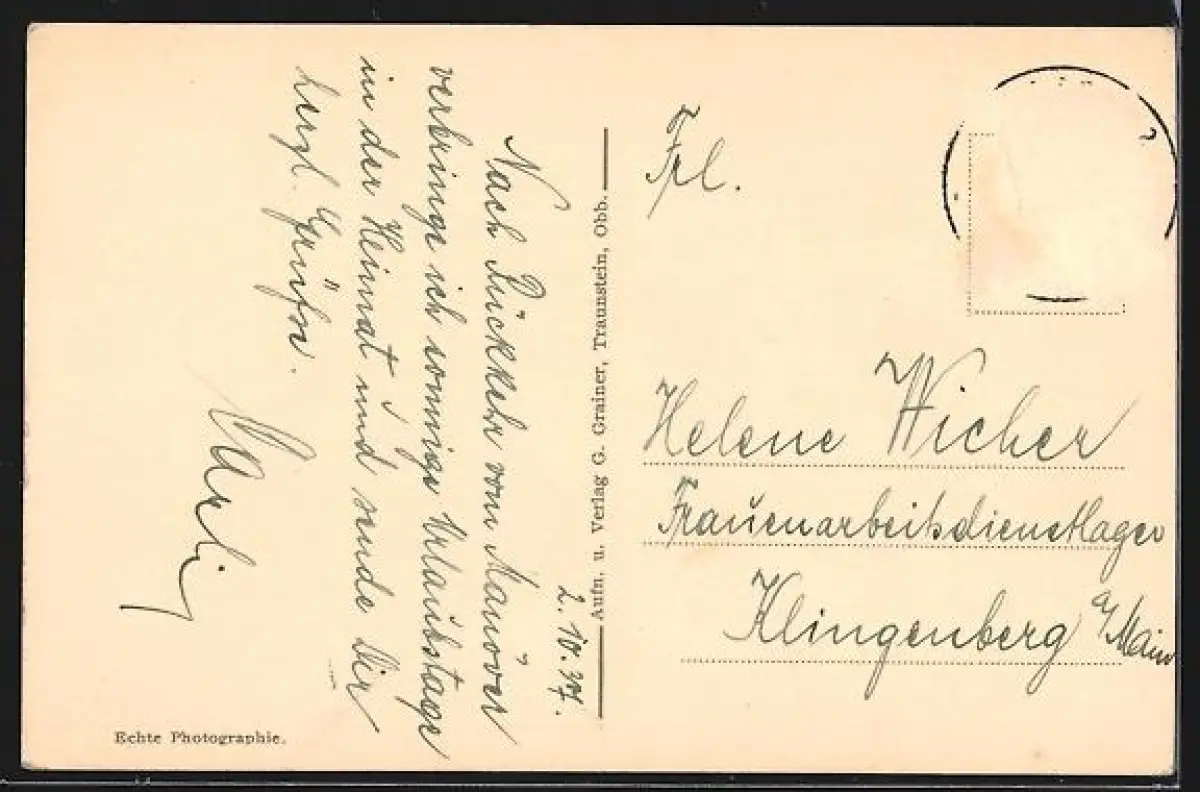 2. 10. 37.
Nach Rückkehr vom Manöver
verbringe ich sonnige Urlaubstage
in der Heimat und sende Dir
herzl. Grüße.
Frl.
Helene Wicher
Frauenarbeitsdienstlager
Klingenberg a/Main
Aufn. u. Verlag G. Grainer, Traunstein, Obb.
Echte Photographie.